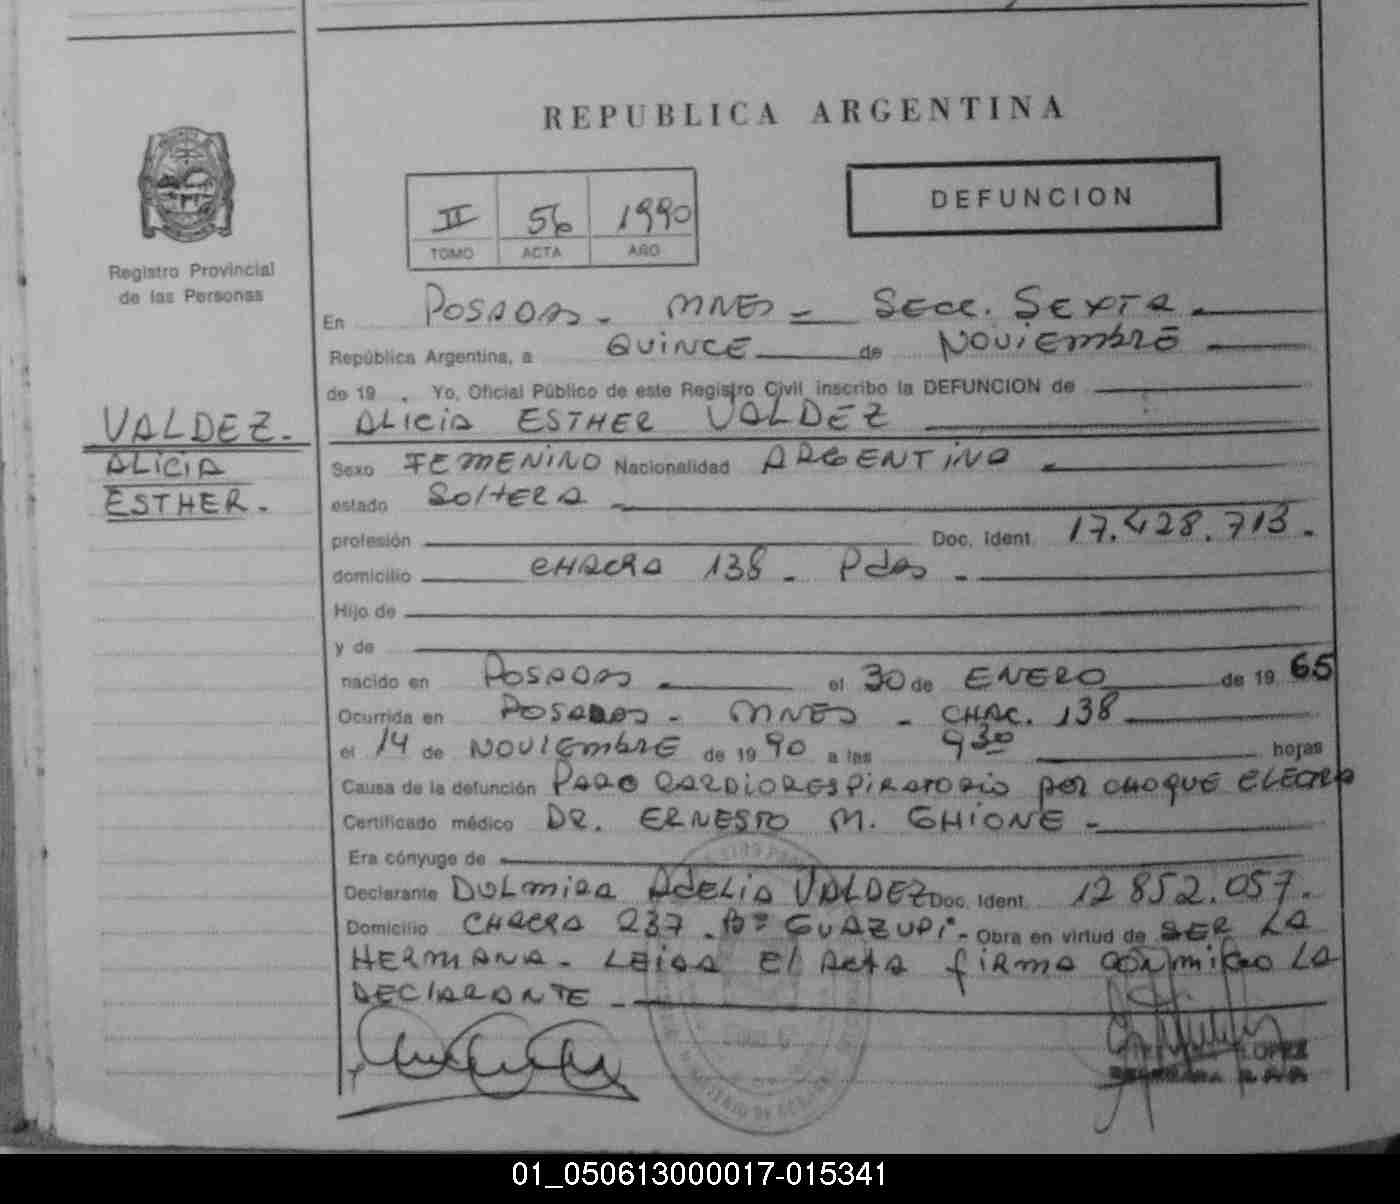 REPUBLICA ARGENTINA
DEFUNCION
II 56 1990
TOMO ACTA AÑO
Registro Provincial
de las Personas
En POSADAS - MNES - SECC. SEXTA
República Argentina, a QUINCE de NOVIEMBRE
de 19 . Yo, Oficial Público de este Registro Civil inscribo la DEFUNCION de
VALDEZ.
ALICIA
ESTHER.
ALICIA ESTHER VALDEZ
Sexo FEMENINO Nacionalidad ARGENTINA
estado SOLTERA
profesión Doc. Ident. 17.428.713.
domicilio CHACRA 138 - Pdas -
Hijo de
y de
nacido en POSADAS el 30 de ENERO de 19 65
Ocurrida en POSADAS - MNES - CHAC. 138
el 14 de NOVIEMBRE de 19 90 a las 9 30 horas
Causa de la defunción PARO CARDIORESPIRATORIO POR CHOQUE ELECTRO
Certificado médico DR. ERNESTO M. GHIONE -
Era cónyuge de
Declarante DULMIRA ADELIA VALDEZ Doc. Ident. 12 852.057.
Domicilio CHACRA 237 - Bº GUAZUPI - Obra en virtud de SER LA
HERMANA - LEIDA El ACTA FIRMA CONMIGO LA
DECLARANTE -
LOPEZ
01_050613000017-015341